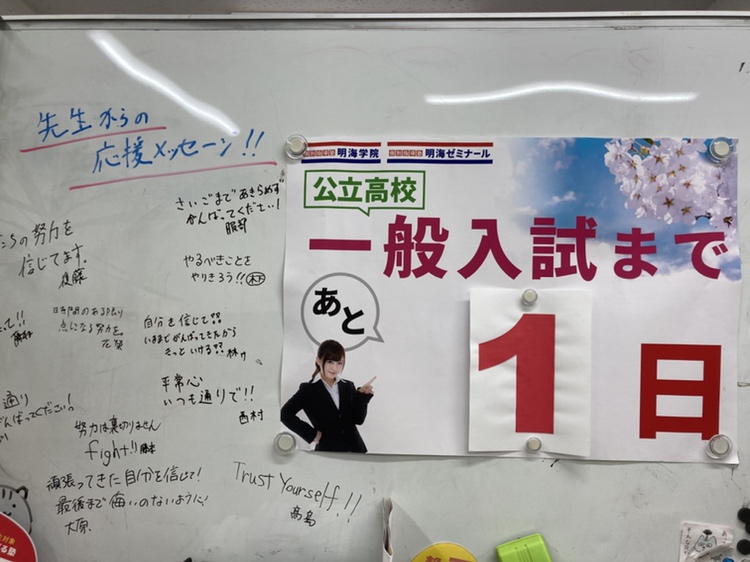 先生からの
応援メッセージ!!
さいごまであきらめず
がんばってください!
服部
の努力を
信じてます。
後藤
やるべきことを
やりきろう!! 木下
時間のある限り
点になる努力を。
自分を信じて!!
いままでがんばってきたから
きっといける!! 林
平常心
いつも通りで!!
西村
通り
がんばってください!
努力は裏切りません
fight!!
頑張ってきた自分を信じて!
最後まで悔いのないように!
大原
Trust Yourself!!
高島
明海学院 明海ゼミナール
公立高校
一般入試まで
あと
1日